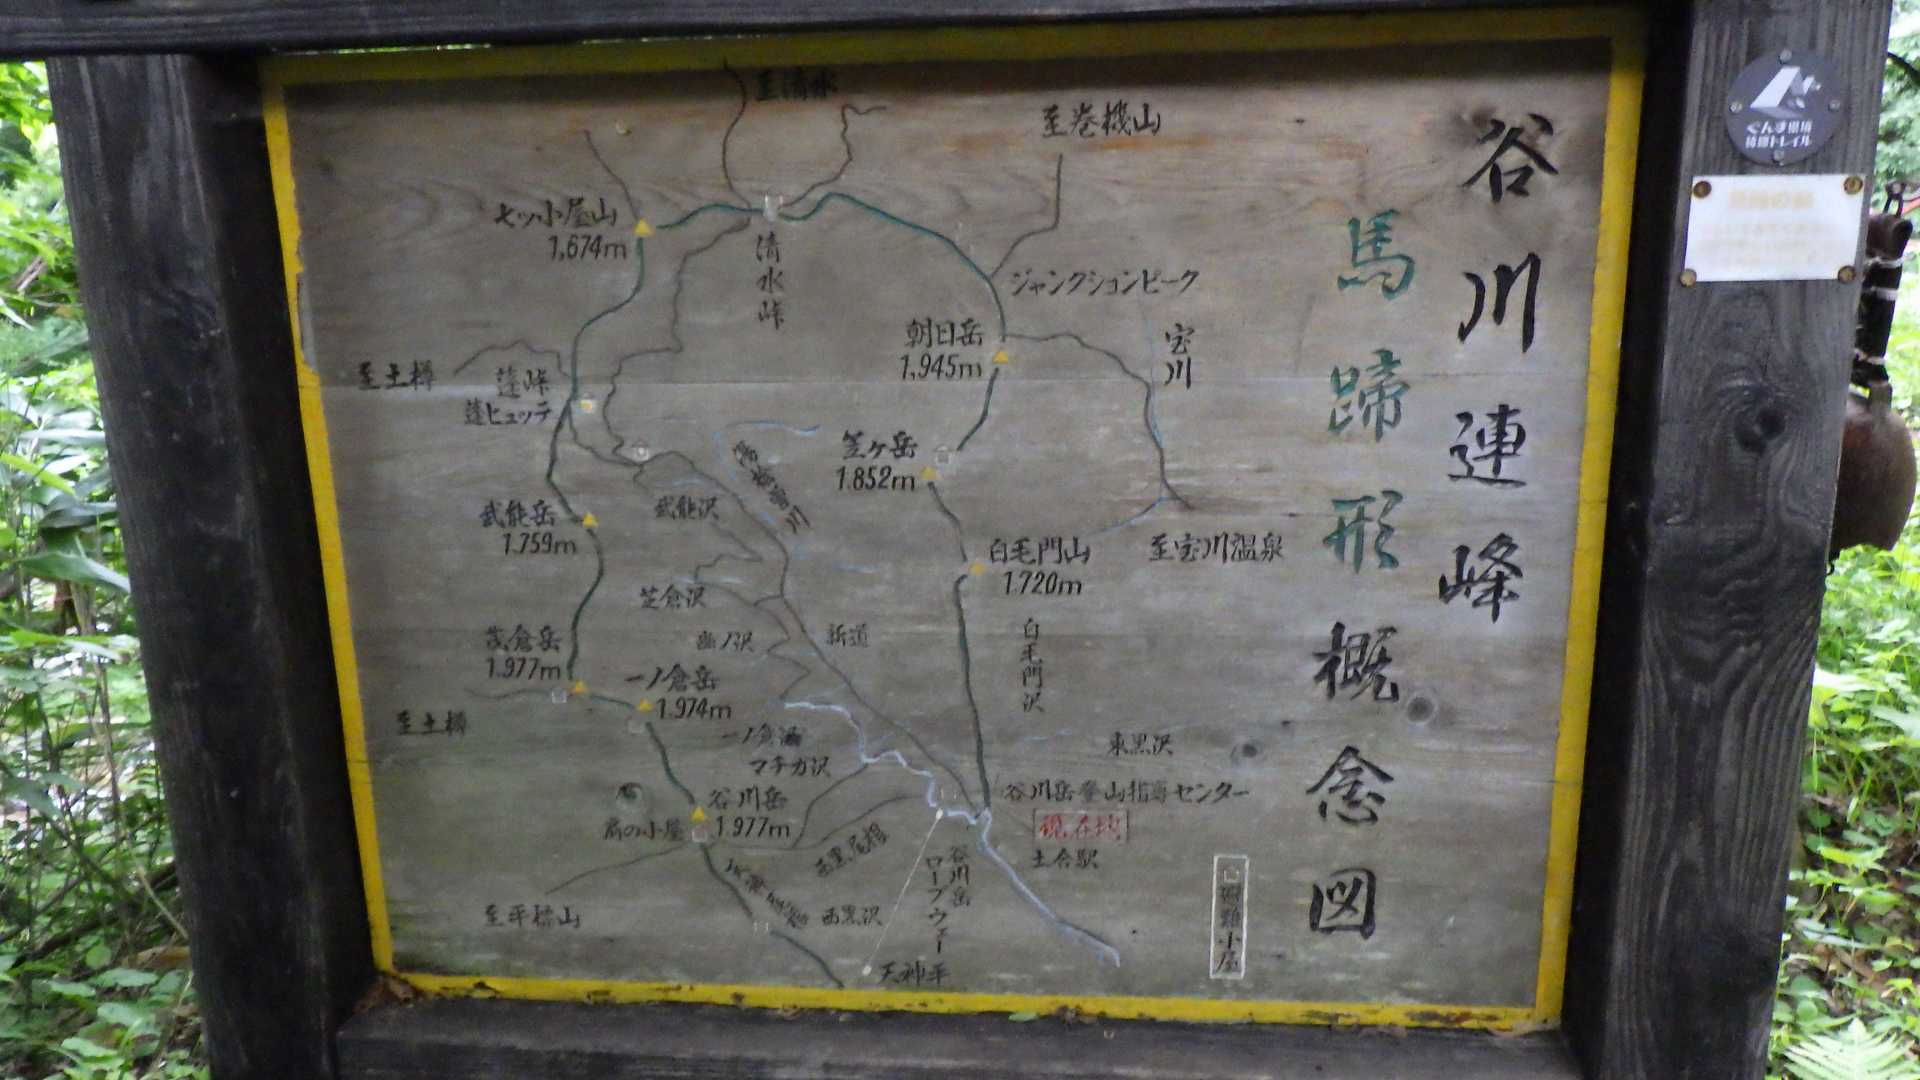 谷川連峰
馬蹄形概念図
至清水
至巻機山
七ッ小屋山
1,674m
清水峠
ジャンクションピーク
朝日岳
1,945m
宝川
至土樽
蓬峠
蓬ヒュッテ
笠ヶ岳
1.852m
湯桧曽川
武能沢
武能岳
1.759m
白毛門山
1.720m
至宝川温泉
芝倉沢
新道
白毛門沢
茂倉岳
1.977m
一ノ倉岳
1.974m
至土樽
一ノ倉沢
マチガ沢
東黒沢
谷川岳
1.977m
肩の小屋
谷川岳登山指導センター
現在地
土合駅
西黒尾根
西黒沢
天神尾根
谷川岳
ロープウェー
至平標山
天神平
避難小屋
ぐんま県境
稜線トレイル